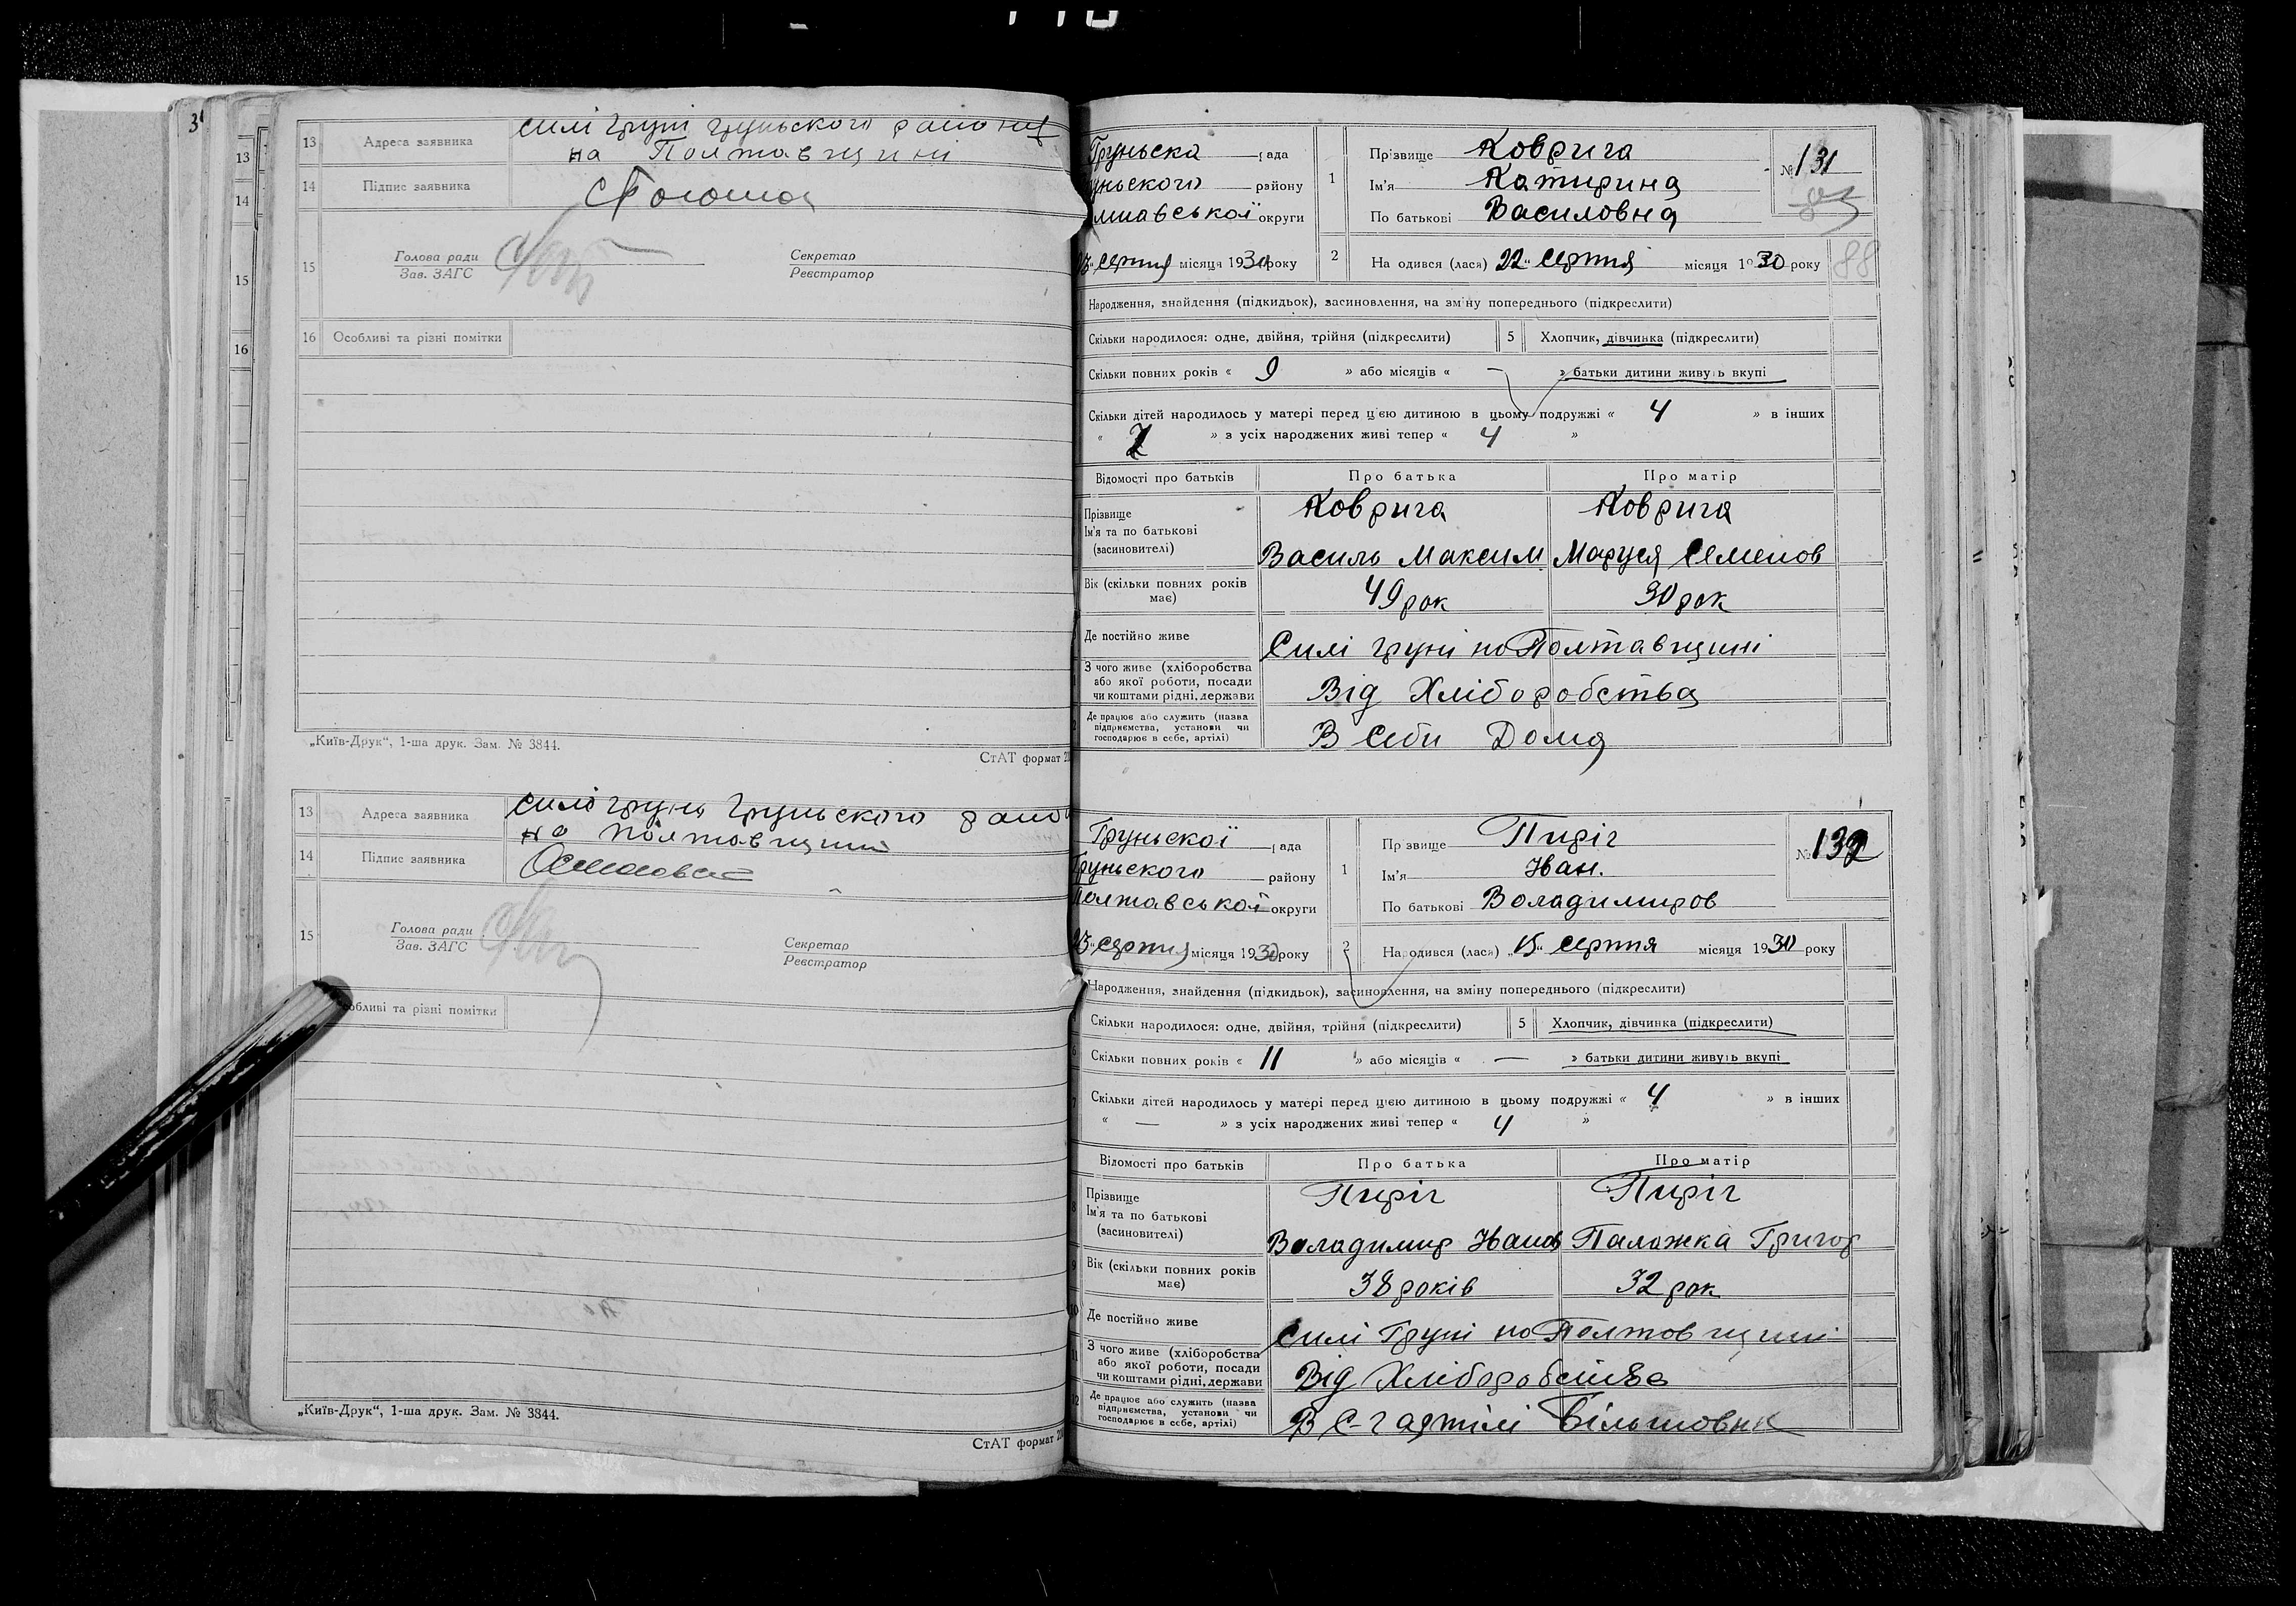 3
13
14
15
16
13 Адреса заявника силі груні груньского району
на Полтавщині
14 Підпис заявника
15 Голова ради
Зав. ЗАГС
Секретар
Реєстратор
16 Особливі та різні помітки
„Київ-Друк“, 1-ша друк. Зам. № 3844.
СтАТ формат
13 Адреса заявника силі грунь Груньского
на полтавщині
14 Підпис заявника
15 Голова ради
Зав. ЗАГС
Секретар
Реєстратор
обливі та різні помітки
„Київ-Друк“, 1-ша друк. Зам. № 3844.
СтАТ формат
Груньска рада
уньского району
лтавської округи
серпня місяця 1930 року
1 Прізвище Коврига
Ім'я Катирина
По батькові Василовна
№ 131
88
2 На одився (лася) 22" серпня місяця 1930 року
Народження, знайдення (підкидьок), засиновлення, на зміну попереднього (підкреслити)
Скільки народилося: одне, двійня, трійня (підкреслити) 5 Хлопчик, дівчинка (підкреслити)
Скільки повних років « 9 » або місяців « — » батьки дитини живуть вкупі
Скільки дітей народилось у матері перед цією дитиною в цьому подружжі « 4 » в інших
« » з усіх народжених живі тепер « 4 »
Відомості про батьків Про батька Про матір
Прізвище Коврига Коврига
Ім'я та по батькові
(засиновителі) Василь Максим Маруся Семенов
Вік (скільки повних років
має) 49 рок 30 рок
Де постійно живе Силі груні на Полтавщині
З чого живе (хліборобства
або якої роботи, посади
чи коштами рідні, держави Від Хліборобства
Де працює або служить (назва
підприємства, установи чи
господарює в себе, артілі) В себи Дома
Груньскої рада
Груньского району
Полтавської округи
23" серпня місяця 1930 року
1 Пр звище Пиріг
Ім'я Іван.
По батькові Воладимиров
№ 132
2 Народився (лася) „15" серпня місяця 1930 року
Народження, знайдення (підкидьок), засиновлення, на зміну попереднього (підкреслити)
Скільки народилося: одне, двійня, трійня (підкреслити) 5 Хлопчик, дівчинка (підкреслити)
6 Скільки повних років « 11 » або місяців « — » батьки дитини живуть вкупі
7 Скільки дітей народилось у матері перед цією дитиною в цьому подружжі « 4 » в інших
« — » з усіх народжених живі тепер « 4 »
Відомості про батьків Про батька Про матір
8 Прізвище Пиріг Пиріг
Ім'я та по батькові
(засиновителі) Воладимир Іванов Паложка Григор
9 Вік (скільки повних років
має) 38 років 32 рок
10 Де постійно живе силі Груні на Полтовщині
11 З чого живе (хліборобства
або якої роботи, посади
чи коштами рідні, держави Від Хліборобства
12 Де працює або служить (назва
підприємства, установи чи
господарює в себе, артілі) В С-г артілі Більшовик